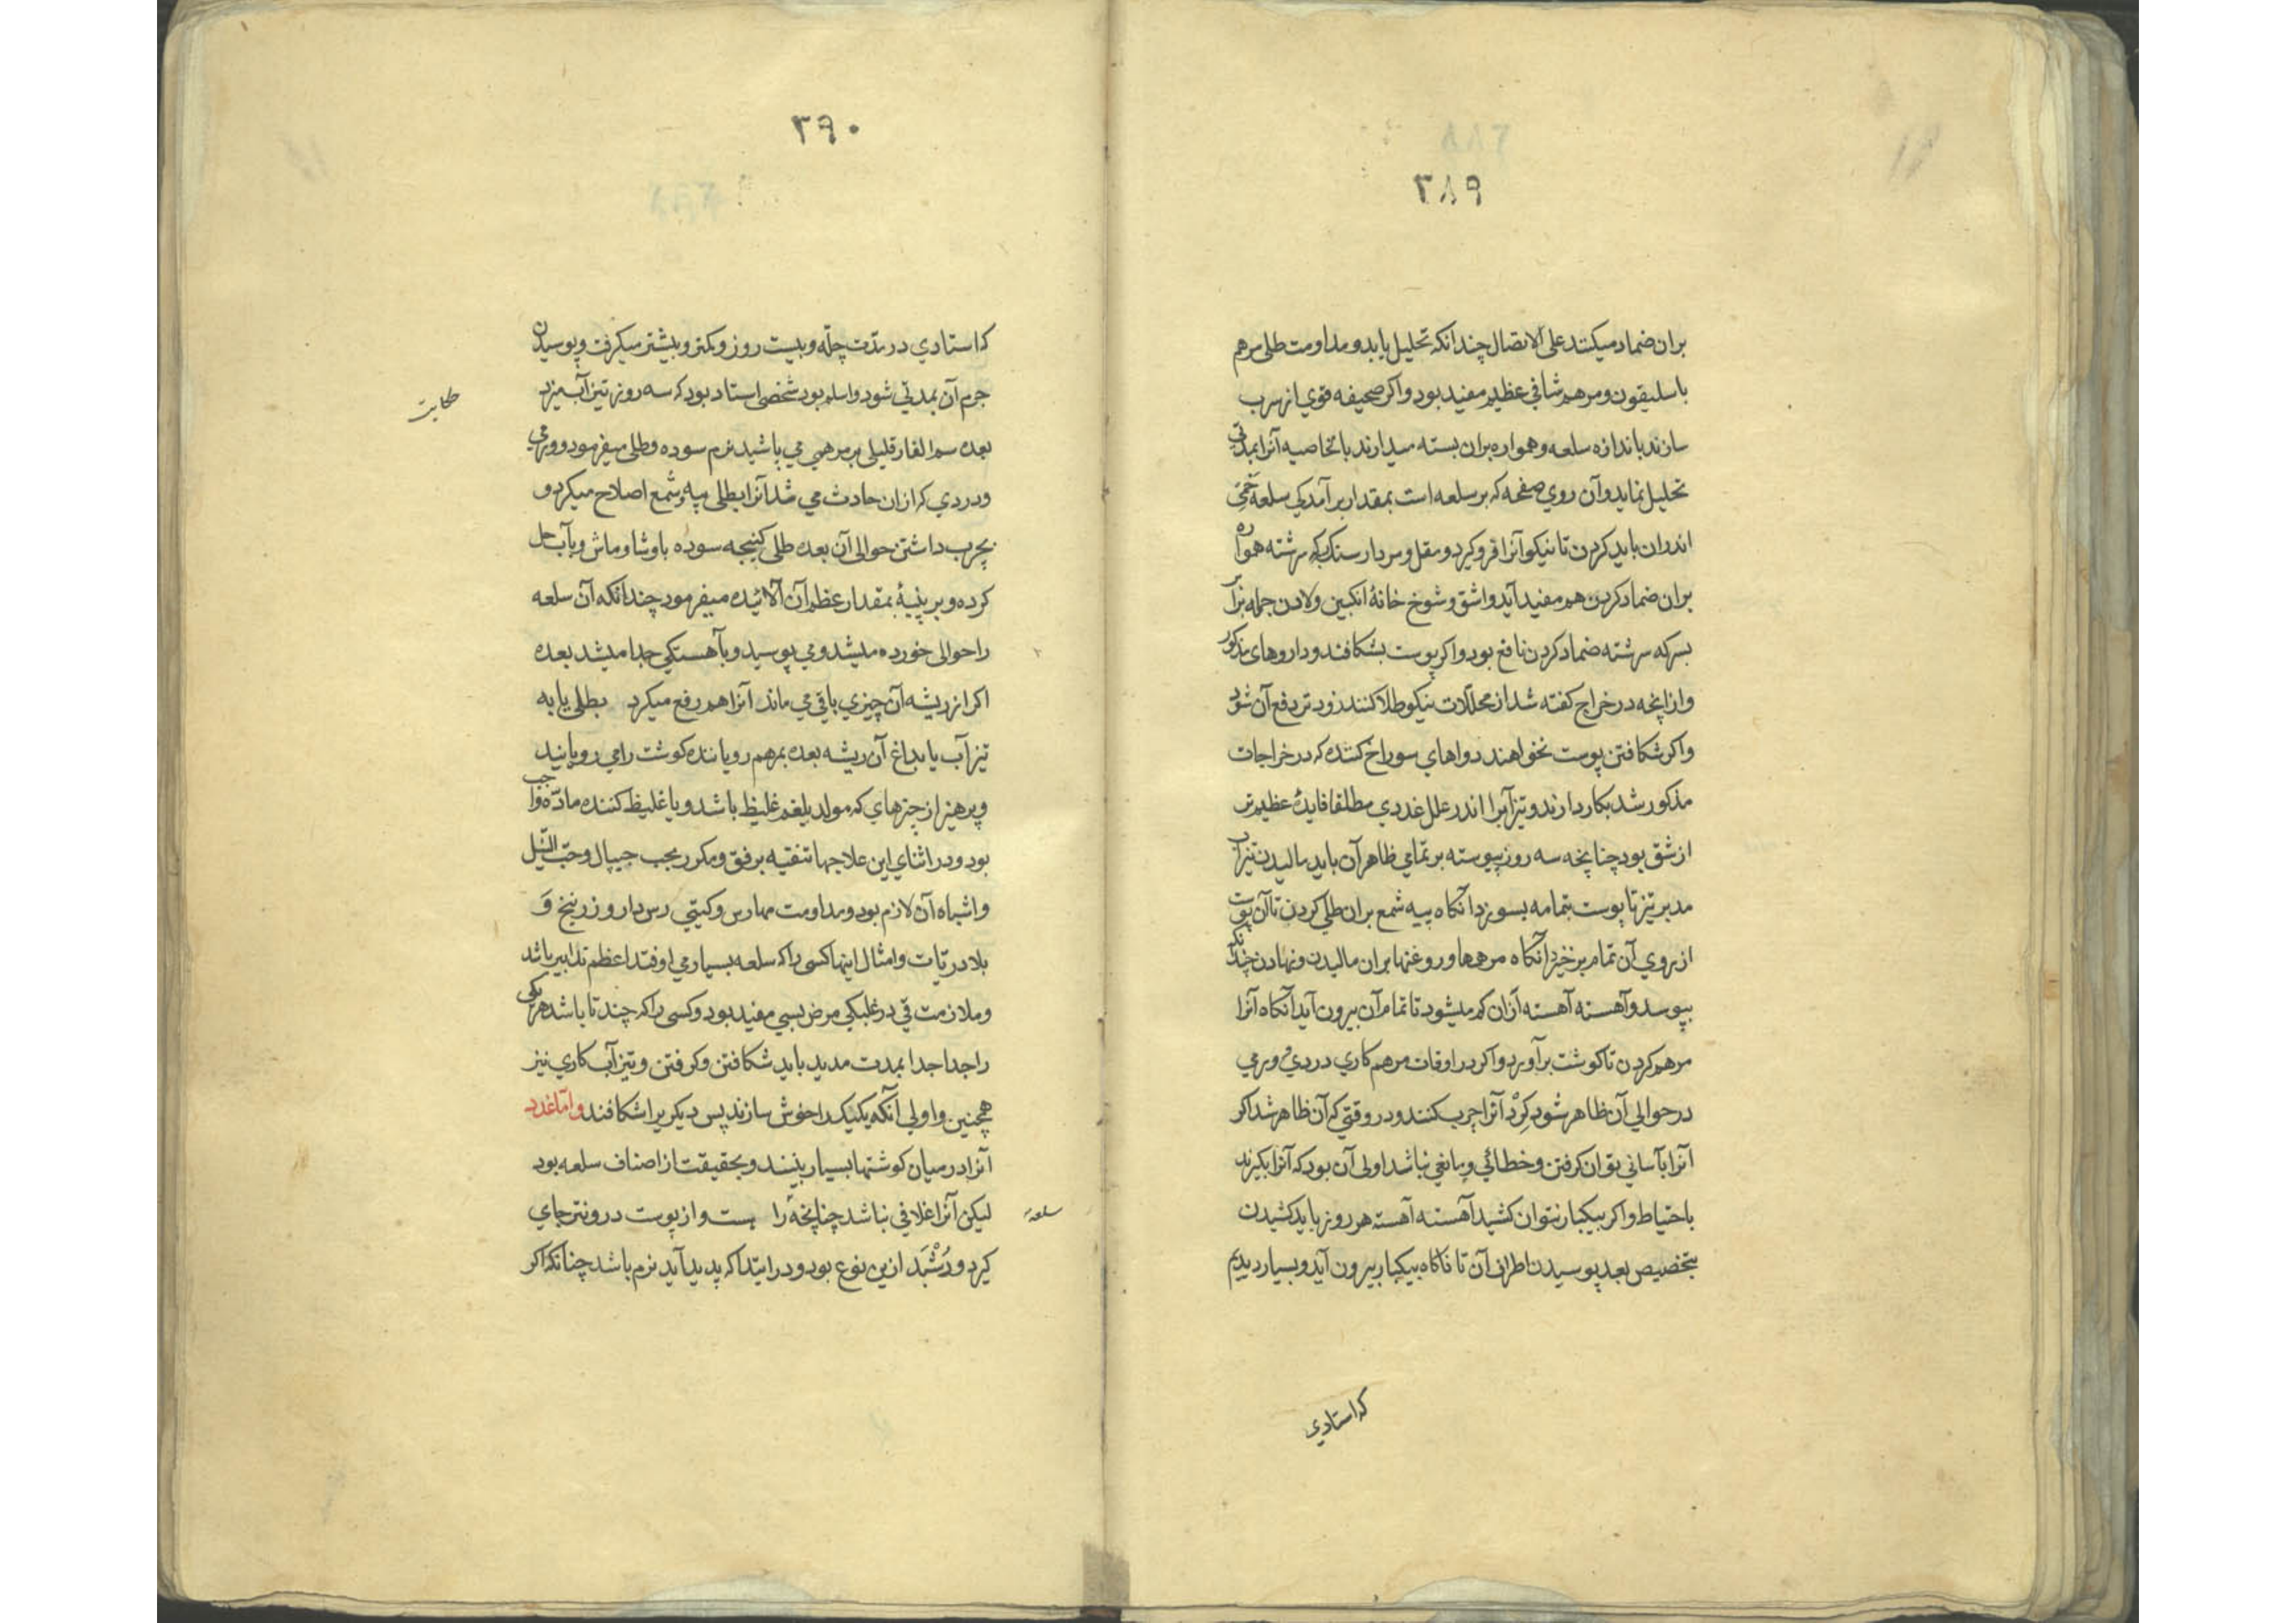 ۳۸۹
بران ضماد میکنند علی الاتصال چندانکه تحلیل یابد و مداومت طلی مرهم
باسلیقون و مرهم شافی عظیم مفید بود و اکر صحیفه قوی از سرب
سازند باندازه سلعه و همواره بران بسته میدارند بالخاصیه آنرا بمدتی
تحلیل نماید و آن روی صفحه که بر سلعه است بمقدار برآمدکی سلعه
اندران باید کردن تا نیکو آنرا فرو کیرد و مقل و مردارسنک بسرکه سرشته همواره
بران ضماد کردن هم مفید آید و اشق و شوخ خانهٔ انکبین و لادن جمله
بسرکه سرشته ضماد کردن نافع بود و اکر پوست بشکافند و داروهای مذکور
و ازانچه در خراج کفته شد از محللات نیکو طلا کنند زودتر دفع آن شود
و اکر شکافتن پوست نخواهند دواهای سوراخ کننده که در خراجات
مذکور شد بکار دارند و تیزآب را اندر علل غددی مطلقا فایدهٔ عظیم تر
از شق بود چنانچه سه روز پیوسته بر تمامی ظاهر آن باید مالیدن تیزاب
مدبر تیز تا پوست بتمامه بسوزد آنکاه پیه شمع بران طلی کردن تا آن پوست
از روی آن تمام برخیزد آنکاه مرهمها و روغنها بران مالیدن و نهادن چندانکه
بپوسد و آهسته آهسته ازان کم میشود تا تمام آن بیرون آید آنکاه آنرا
مرهم کردن تا کوشت برآورد و اکر در اوقات مرهم کاری دردی و ورمی
در حوالی آن ظاهر شود کرد آنرا چرب کنند و در وقتی که آن ظاهر شد اکر
آنرا بآسانی توان کرفتن و خطائی و مانعی نباشد اولی آن بود که آنرا بکیرند
باحتیاط و اکر بیکبار نتوان کشید آهسته آهسته هر روز باید کشیدن
بتخصیص بعد پوسیدن اطراف آن تا ناکاه بیکبار بیرون آید و بسیار دیدیم
که استادی
۳۹۰
که استادی در مدت چله و بیست روز و کمتر و بیشتر میکرفت و پوسیدن
جرم آن بمدتی شود و اسلم بود شخصی استاد بود که سه روز تیزآب میزد
حکایت
بعده سم الفار قلیلی بر مرهمی می پاشید نرم سوده و طلی میفرمود و ورمی
و دردی که ازان حادث می شد آنرا بطلی پیه و شمع اصلاح میکرد و
بچرب داشتن حوالی آن بعده طلی کنیجه سوده باوشا و ماش و بآب حل
کرده و بر پنبهٔ بمقدار عظم آن آلائیده میفرمود چندانکه آن سلعه
را حوالی خورده میشد و می پوسید و بآهستکی جدا میشد بعده
اکر از ریشه آن چیزی باقی می ماند آنرا هم رفع میکرد بطلی یا به
تیزآب یا بداغ آن ریشه بعده بمرهم رویاننده کوشت را می رویانید
و پرهیز از چیزهای که مولد بلغم غلیظ باشد و یا غلیظ کننده ماده واجب
بود و در اثنای این علاجها تنقیه برفق و مکرر بحب جیپال و حب النیل
و اشباه آن لازم بود و مداومت مهارس و کیتی رس دارو زرنیخ و
بلادریات و امثال اینها کسی را که سلعه بسیار می اوفتد اعظم تدابیر باشد
و ملازمت قی در غلبکی مرض بسی مفید بود و کسی را که چند تا باشد هر یکی
را جدا جدا بمدت مدید باید شکافتن و کرفتن و تیزآب کاری نیز
همچنین و اولی آنکه یکیک را خوش سازند پس دیکریرا شکافند و اما غدد
آنرا در میان کوشتها بسیار بینند و بحقیقت از اصناف سلعه بود
لیکن آنرا غلافی نباشد چنانچه را یست و از پوست درونتر جای
سلعه
کیرد و رشبد ازین نوع بود و در ابتدا که پدید آید نرم باشد چنانکه اکر